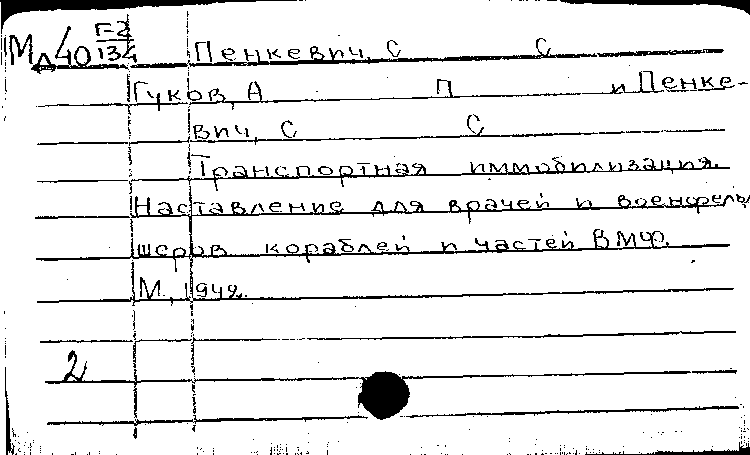 Мл40 Г-2/134 Пенкевич, С С
Гуков, А П и Пенке-
вич, С С
Транспортная иммобилизация.
Наставление для врачей и военфельд
шеров кораблей и частей ВМФ.
М., 1942.
2